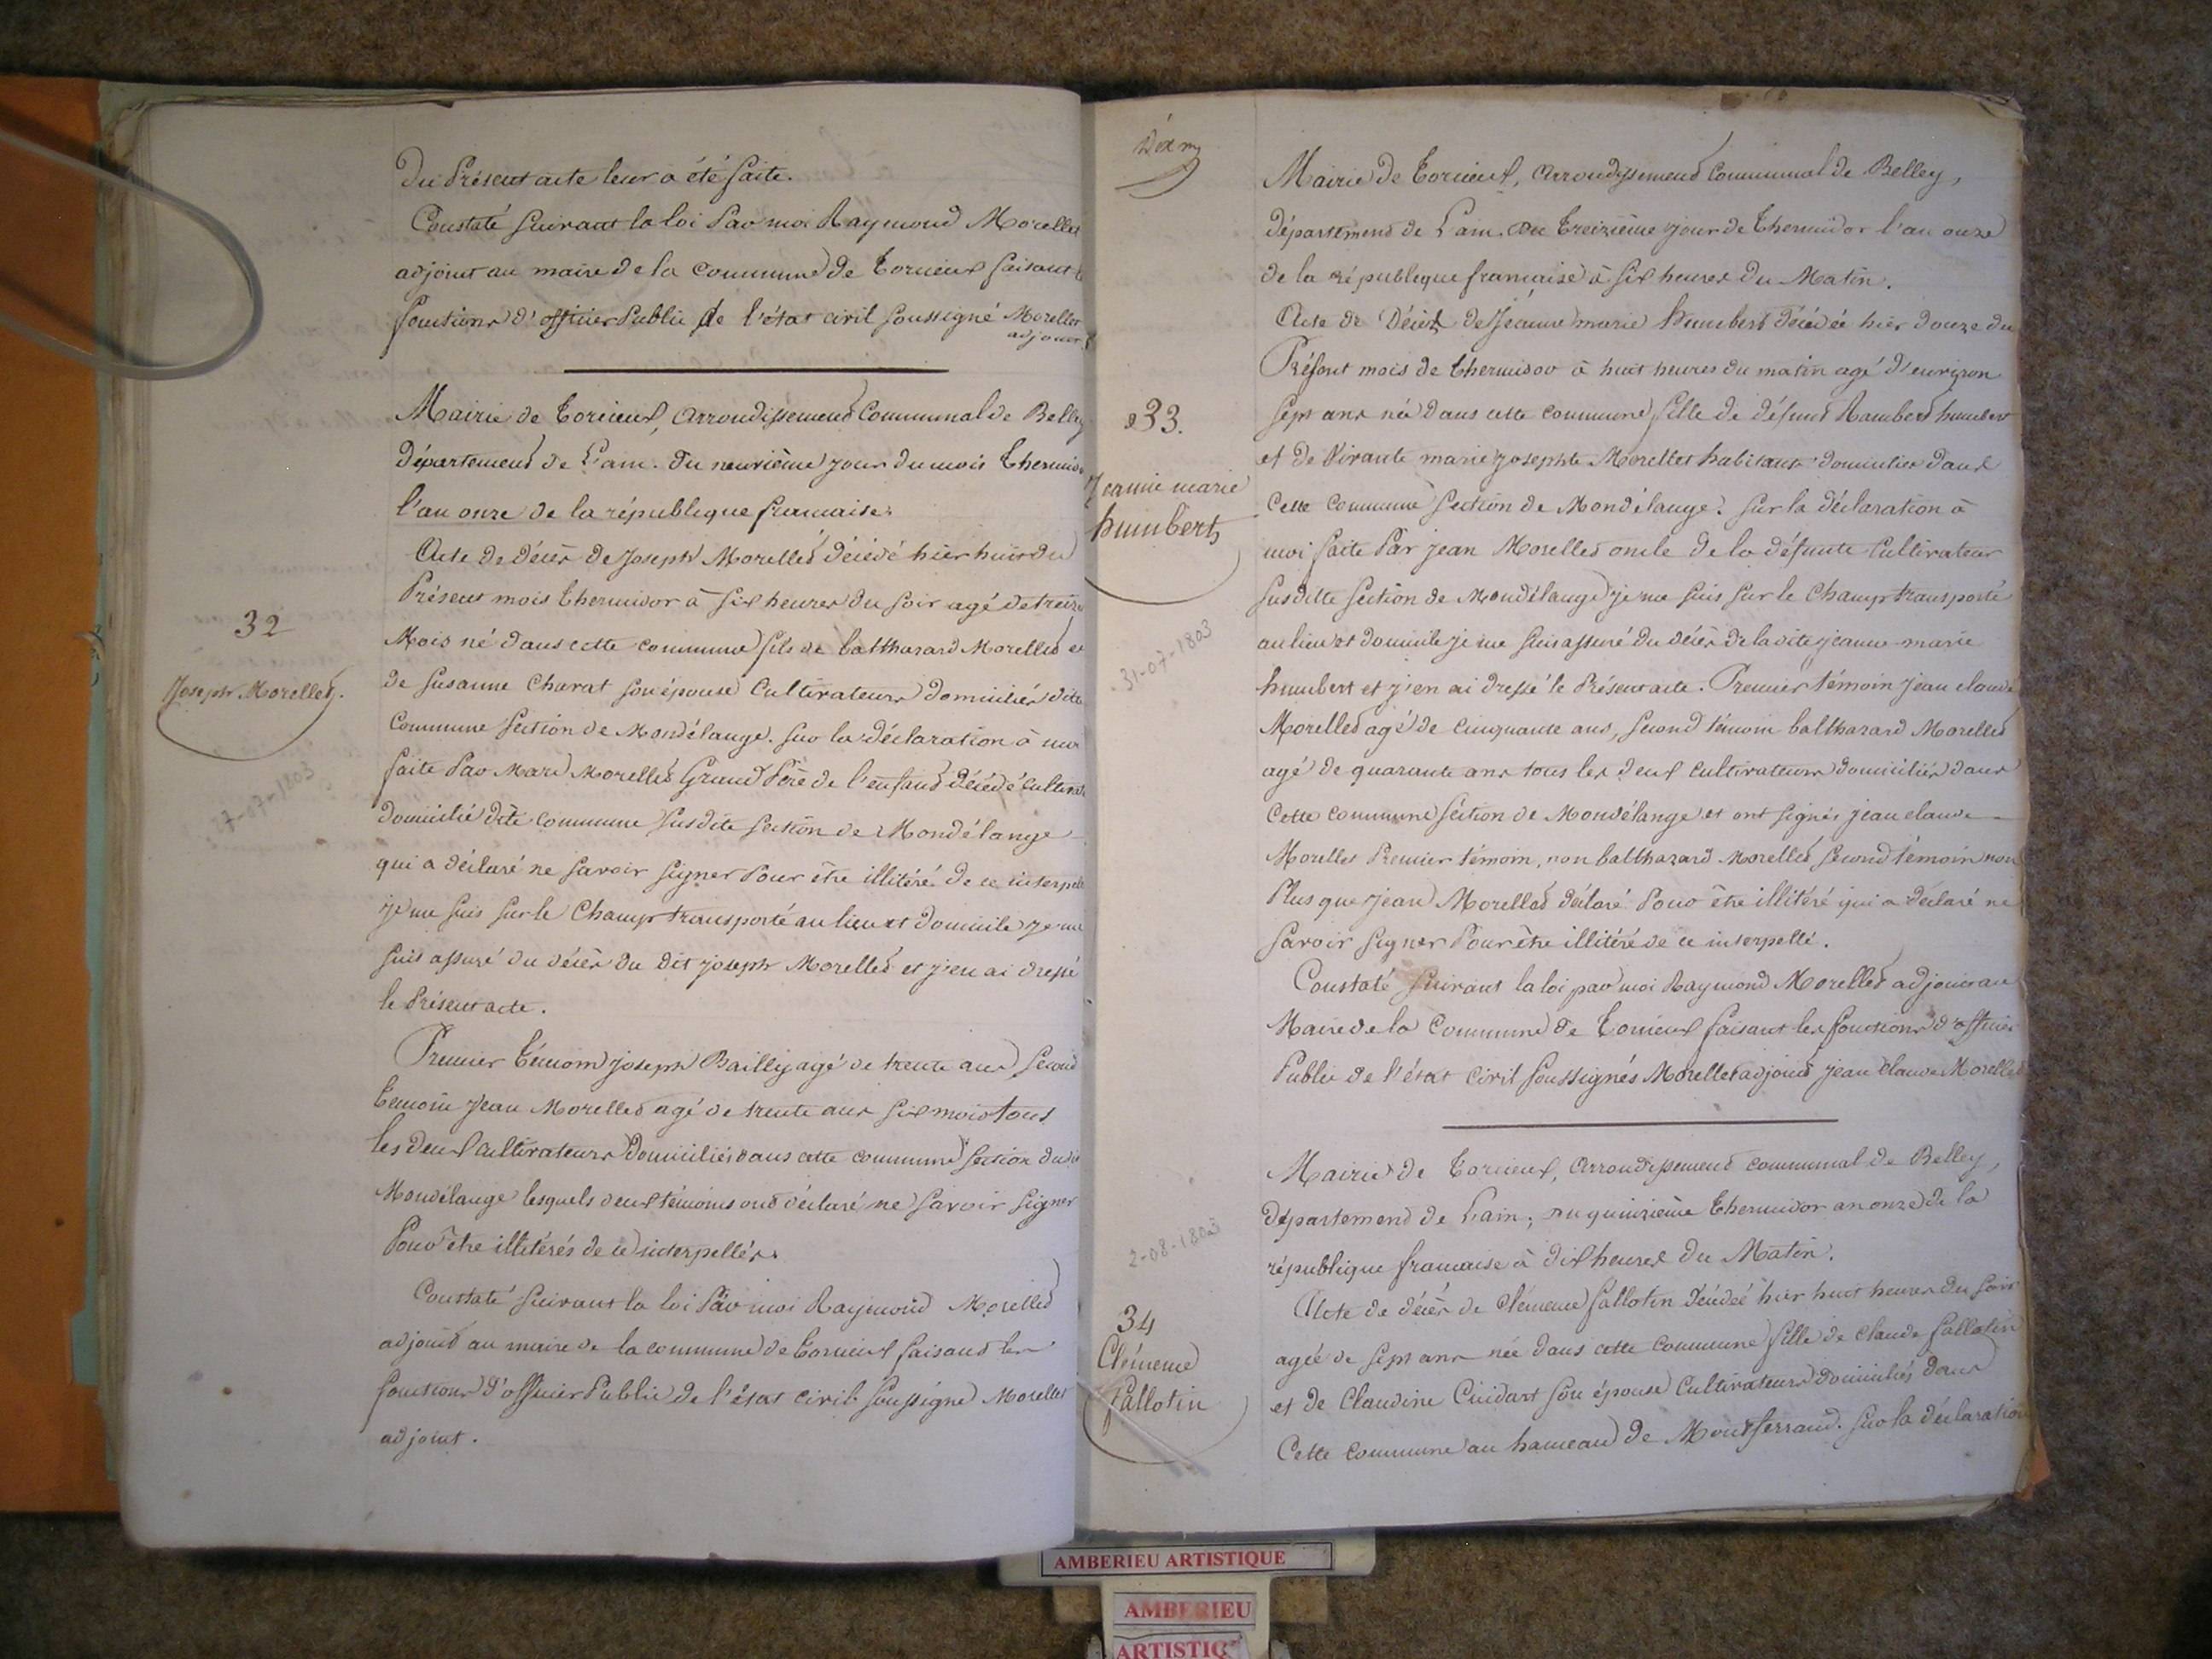 du Présent acte leur a été faite.
Constaté suivant la loi Par moi Raymond Morellet
adjoint au maire de la commune de Torcieux faisant
fonctions d'officier Public de l'état civil soussigné Morellet
adjoint
Mairie de Torcieux, arrondissement Communal de Belley
département de L'ain. du neuvième jour du mois Thermidor
l'an onze de la république francaise.
Acte de décès de Joseph Morellet décédé hier huit du
Présent mois thermidor à six heures du soir agé de treize
32
Mois né dans cette commune fils de balthazard Morellet et
Joseph Morellet.
de Susanne Charat son épouse Cultivateurs domiciliés dite
Commune section de Mondélange. sur la déclaration à moi
faite Par Marc Morellet Grand Père de l'enfant décédé Cultivat
27-07-1803
domicilié dite commune susdite section de Mondélange
qui a déclaré ne savoir signer Pour être illitéré de ce interpellé
je me suis sur le Champ transporté au lieu et domicile je me
suis assuré du décès du dit joseph Morellet et j'en ai dressé
le Présent acte.
Premier témoin joseph Bailly agé de trente ans second
témoin Jean Morellet agé de trente ans six mois tous
les deux cultivateurs domiciliés dans cette commune section dudit
Mondélange lesquels deux témoins ont déclaré ne savoir signer
Pour être illitérés de ce interpellés.
Constaté suivant la loi Par moi Raymond Morellet
adjoint au maire de la commune de Torcieux faisant les
fonctions d'officier Public de l'état civil soussigné Morellet
adjoint.
Mairie de Torcieux, arrondissement Communal de Belley,
département de L'ain. du treizième jour de thermidor l'an onze
de la république francaise à six heures du Matin.
Acte de Décès de Jeanne marie humbert décédée hier douze du
Présent mois de thermidor à huit heures du matin agé d'environ
33.
sept ans née dans cette commune fille de défunt Rambert humbert
et de Vivante marie josephte Morellet habitants domiciliés dans
Jeanne marie
humbert
Cette commune section de Mondélange. sur la déclaration à
moi faite Par jean Morellet oncle de la défunte Cultivateur
susditte section de Mondélange je me suis sur le Champ transporté
31-07-1803
au lieu et domicile je me suis assuré du décès de ladite jeanne-marie
humbert et j'en ai dressé le Présent acte. Premier témoin jean claude
Morellet agé de cinquante ans, second témoin balthazard Morellet
agé de quarante ans tous les deux cultivateurs domiciliés dans
Cette commune section de Mondélange et ont signés jean claude
Morellet Premier témoin, non balthazard Morellet second témoin non
Plus que jean Morellet déclaré Pour être illitéré qui a déclaré ne
savoir signer Pour être illitéré de ce interpellé.
Constaté suivant la loi par moi Raymond Morellet adjoint au
Maire de la Commune de Torcieux faisant les fonctions d'officier
Public de l'état civil soussignés Morellet adjoint jean claude Morellet
Mairie de Torcieux, arrondissement communal de Belley,
département de L'ain; du quinzième thermidor an onze de la
2-08-1803
république francaise à dix heures du Matin.
34
Acte de décès de Clémence fallotin décédée hier huit heures du soir
Clémence
fallotin
agée de sept ans née dans cette commune fille de claude fallotin
et de Claudine Cuidart son épouse Cultivateurs domiciliés dans
Cette commune au hameau de Montferrand. sur la déclaration
AMBERIEU ARTISTIQUE
AMBERIEU
ARTISTIQ